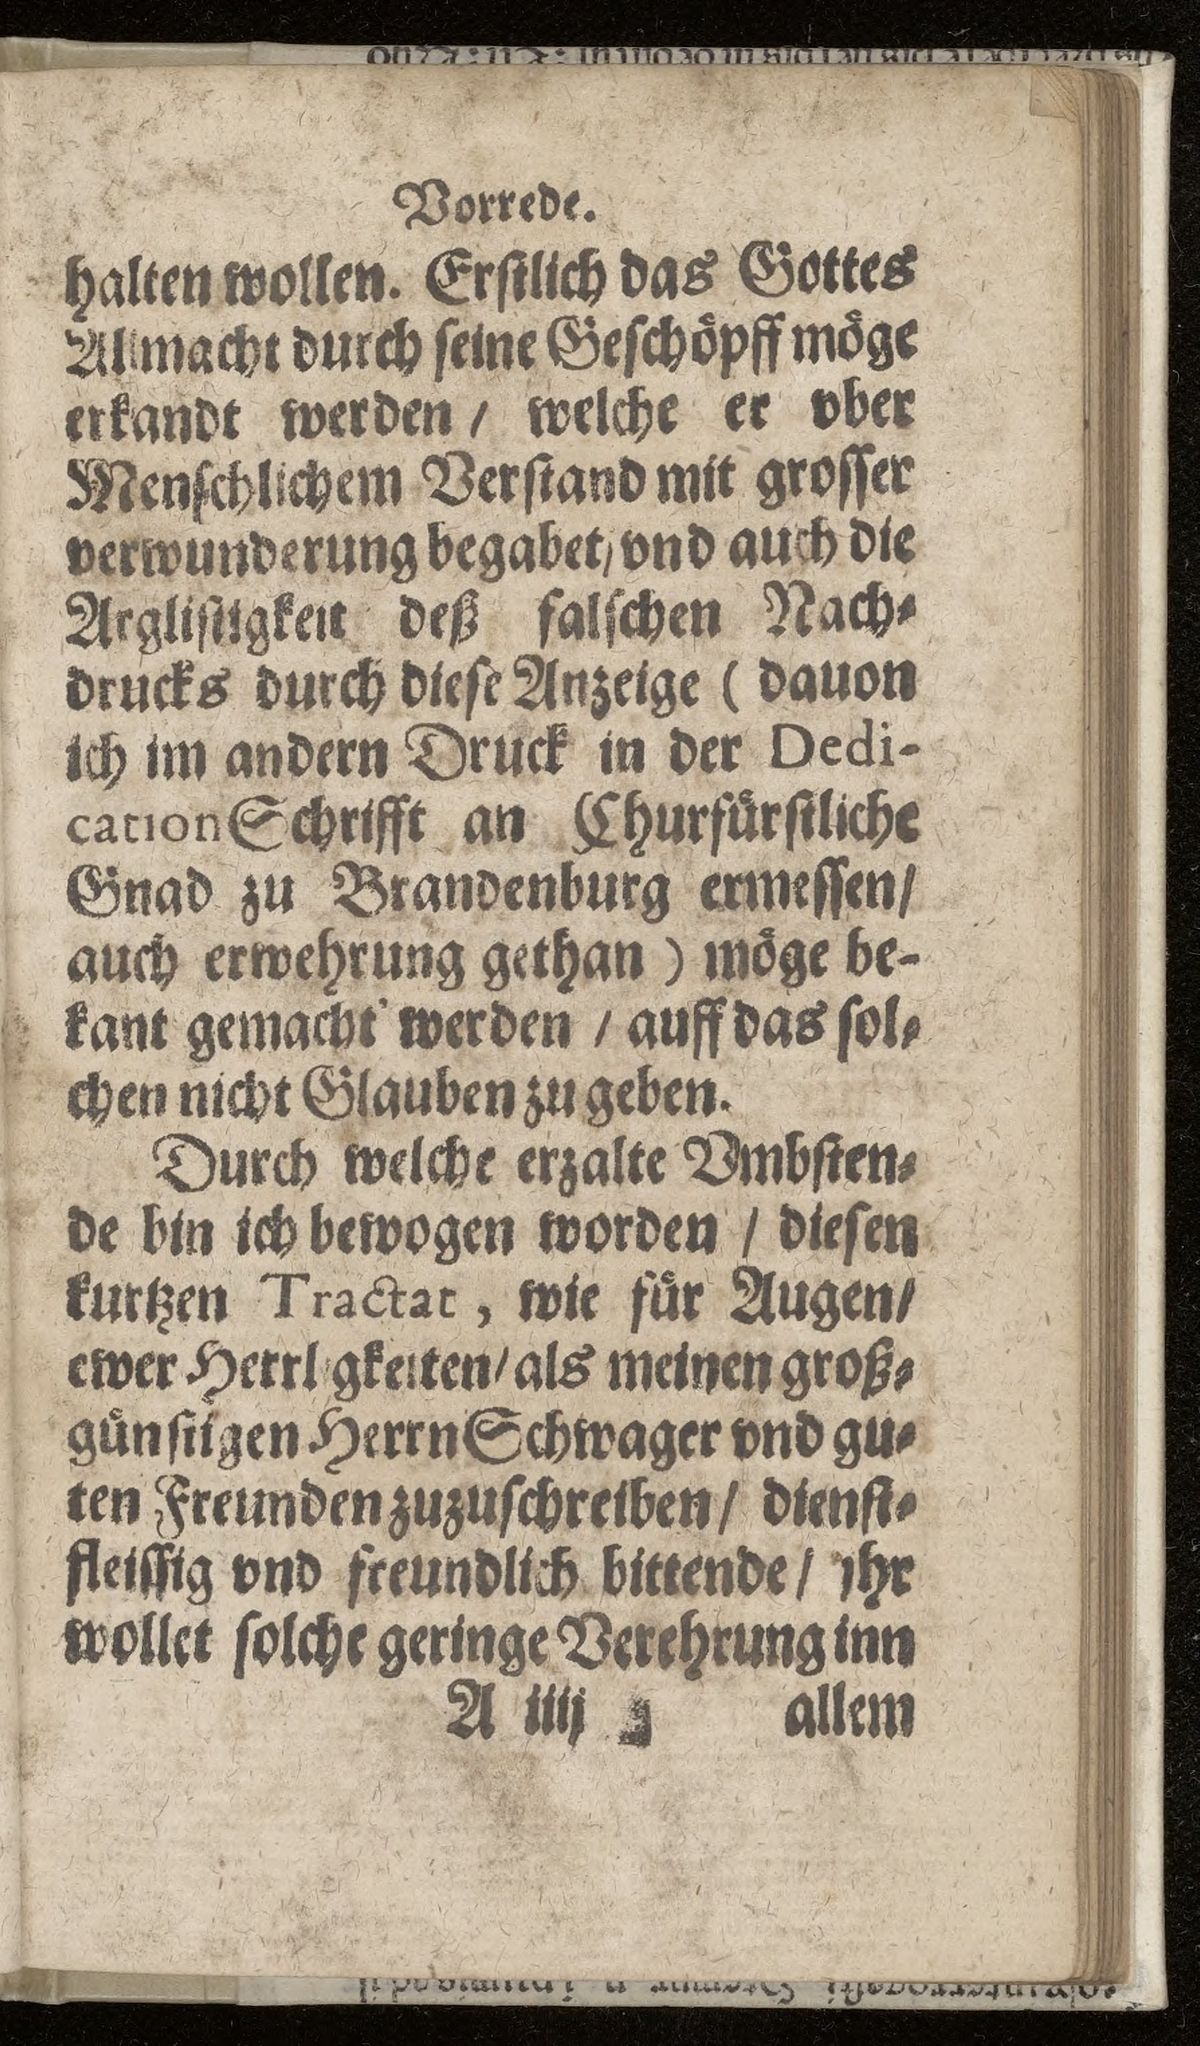 Vorrede.
halten wollen. Erſtlich das Gottes
Allmacht durch ſeine Geſchoͤpff moͤge
erkandt werden / welche er vber
Menſchlichem Verſtand mit groſſer
verwunderung begabet / vnd auch die
Argliſtigkeit deß falſchen Nach⸗
drucks durch dieſe Anzeige ( dauon
ich im andern Druck in der Dedi-
cation Schrifft an Churfuͤrſtliche
Gnad zu Brandenburg ermeſſen /
auch erwehrung gethan ) moͤge be-
kant gemacht werden / auff das ſol⸗
chen nicht Glauben zu geben.
Durch welche erzalte Vmbſten⸗
de bin ich bewogen worden / dieſen
kurtzen Tractat, wie fuͤr Augen /
ewer Herrligkeiten / als meinen groß⸗
guͤnſtigen Herrn Schwager vnd gu⸗
ten Freunden zuzuſchreiben / dienſt⸗
fleiſſig vnd freundlich bittende / ihr
wollet ſolche geringe Verehrung inn
A iiij allem